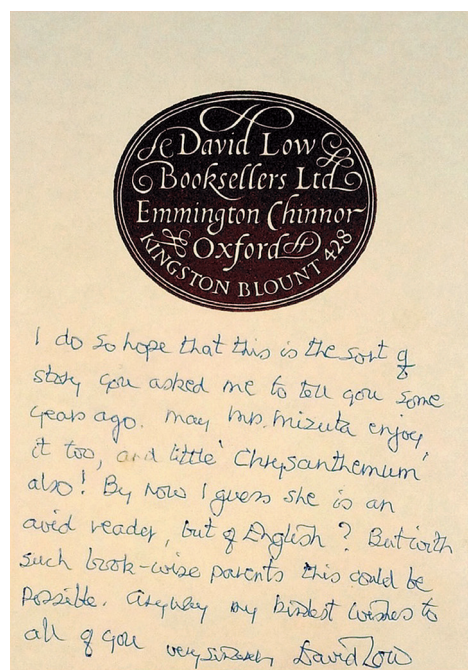 David Low
Booksellers Ltd
Emmington Chinnor
Oxford
KINGSTON BLOUNT 428
I do so hope that this is the sort of
story you asked me to tell you some
years ago. May Mrs. Mizuta enjoy
it too, and little 'Chrysanthemum'
also! By now I guess she is an
avid reader, but of English? But with
such book-wise parents this could be
possible. Anyway my kindest wishes to
all of you very sincerely David Low